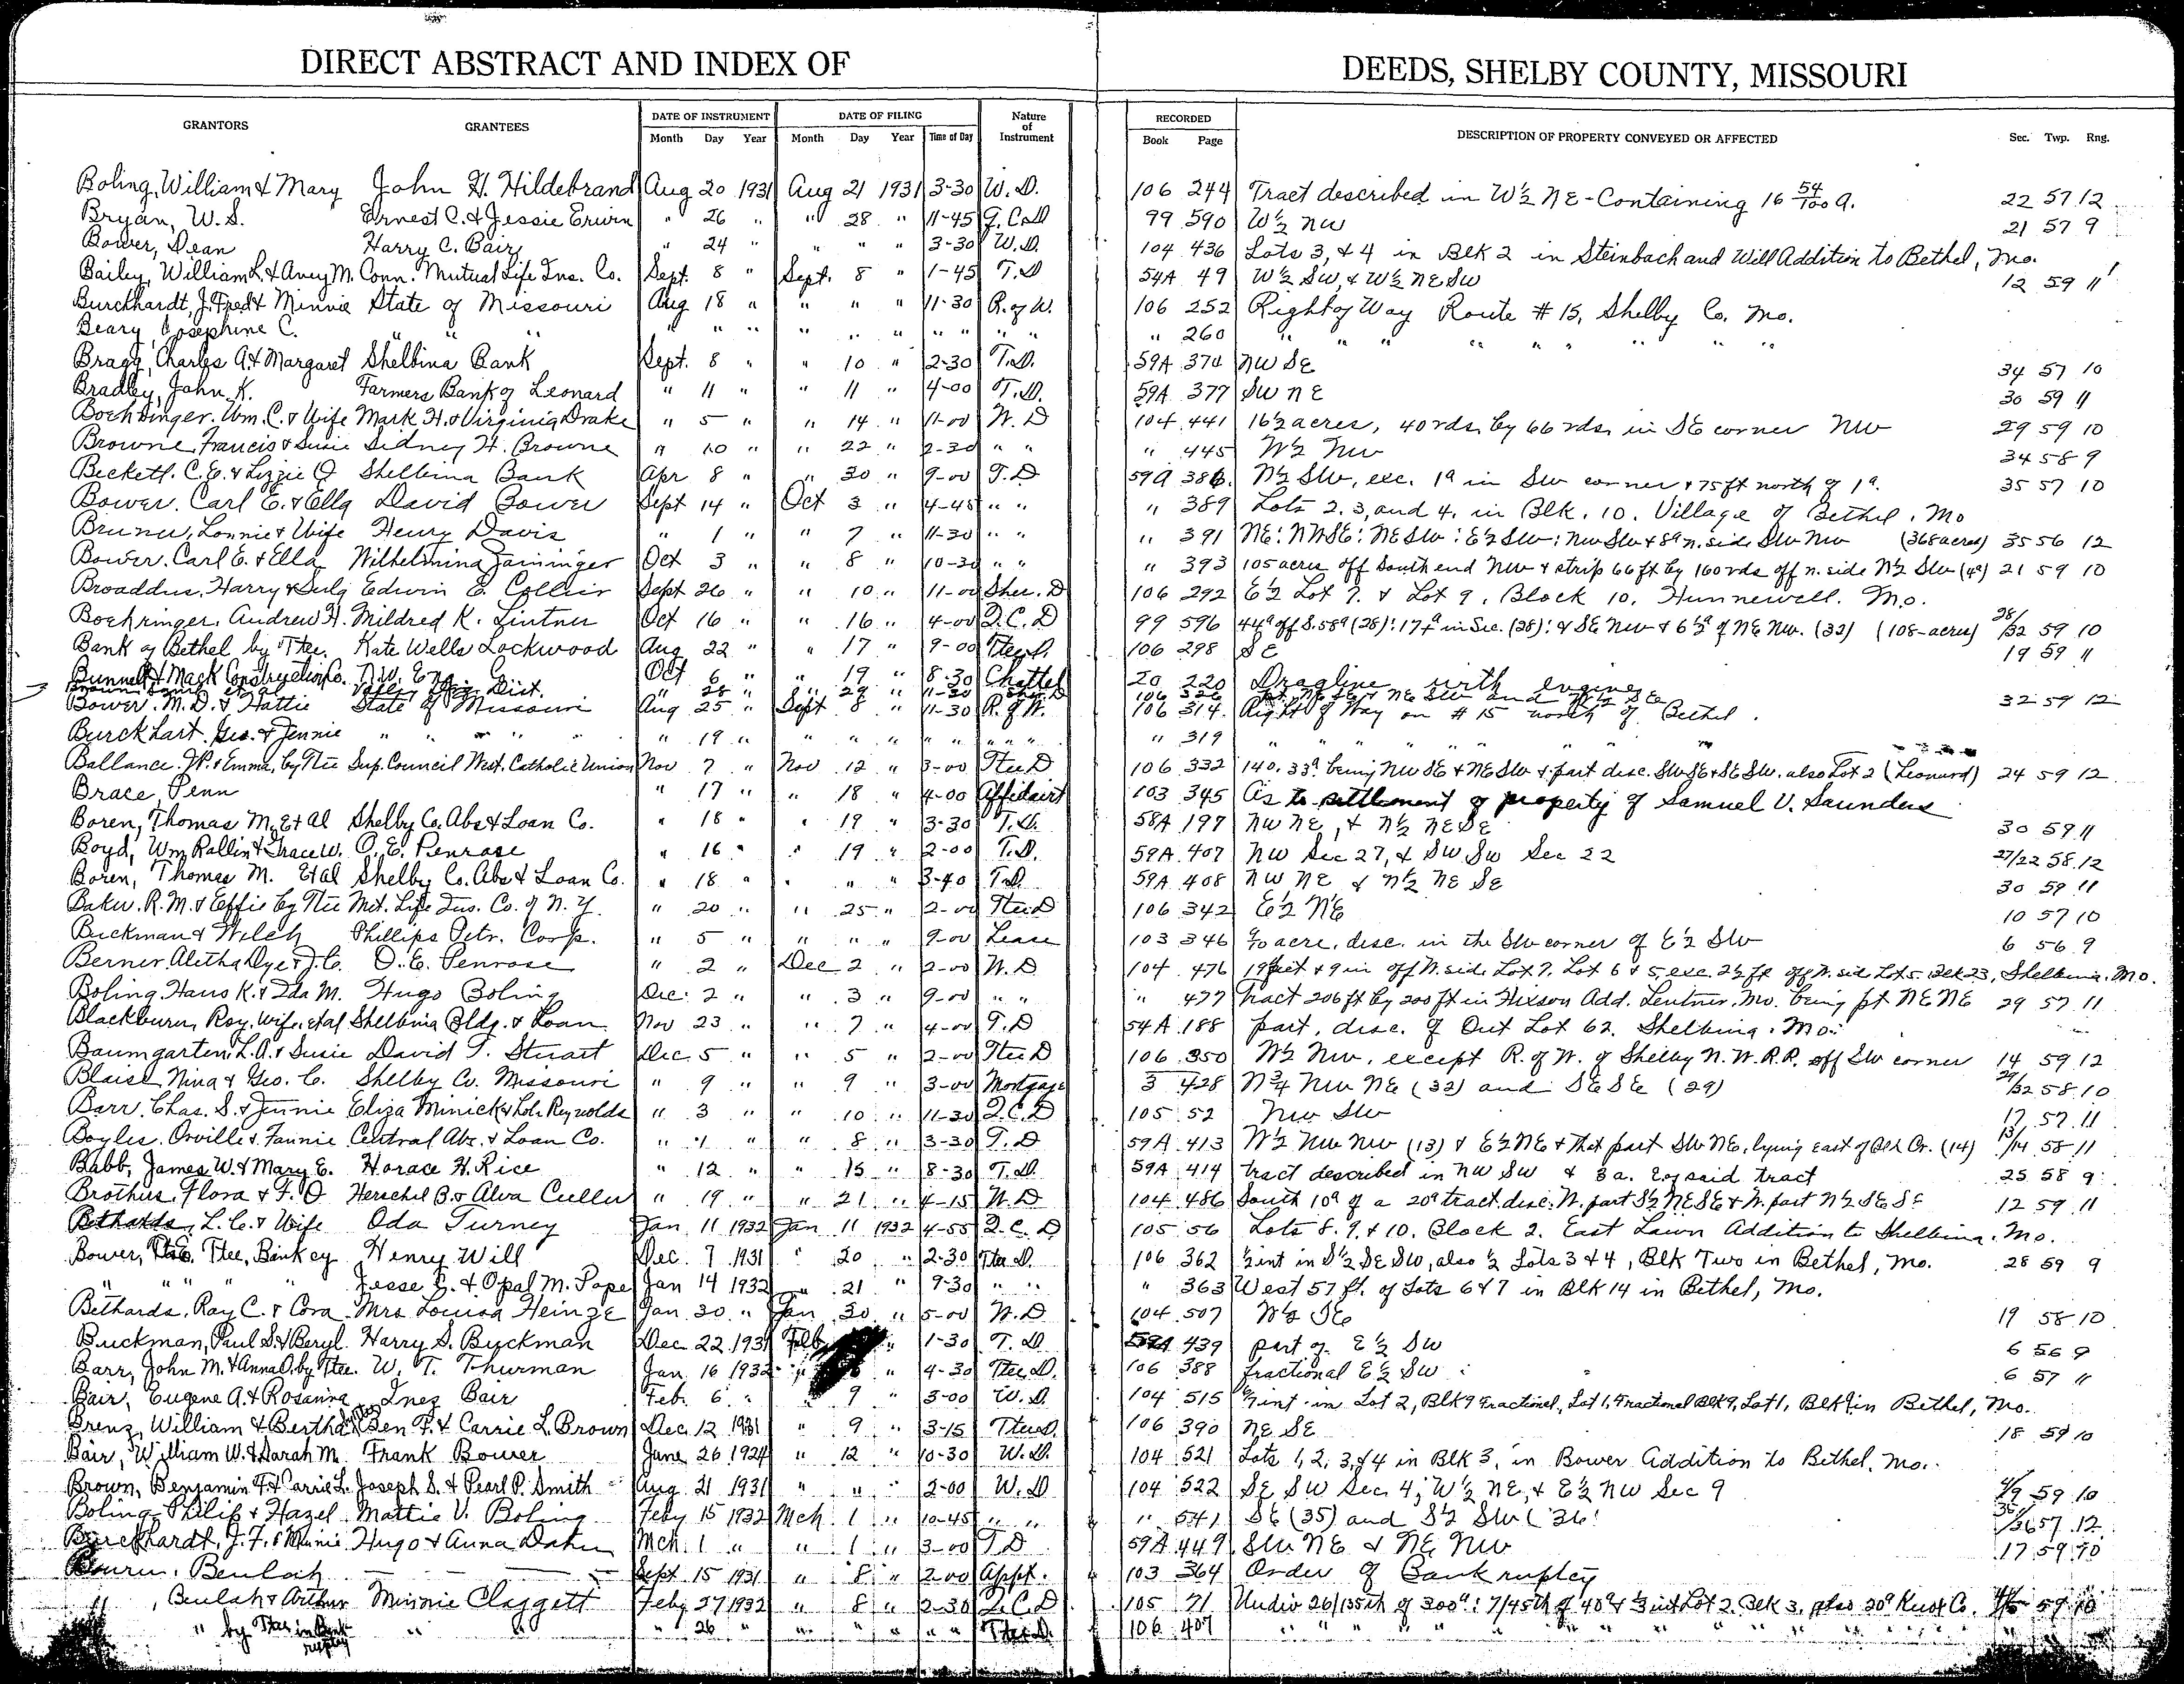 DIRECT ABSTRACT AND INDEX OF DEEDS, SHELBY COUNTY, MISSOURI
GRANTORS GRANTEES DATE OF INSTRUMENT Month Day Year DATE OF FILING Month Day Year Time of Day Nature of Instrument RECORDED Book Page DESCRIPTION OF PROPERTY CONVEYED OR AFFECTED Sec. Twp. Rng.
Boling, William & Mary John H. Hildebrand Aug 20 1931 Aug 21 1931 3-30 W.D. 106 244 Tract described in W½ NE - Containing 16 54/100 a. 22 57 12
Bryan, W. S. Ernest C. & Jessie Erwin " 26 " " 28 " 11-45 Q.C.D 99 590 W½ NW 21 57 9
Bower, Dean Harry C. Bair " 24 " " " " 3-30 W.D. 104 436 Lots 3, & 4 in Blk 2 in Steinbach and Will Addition to Bethel, Mo.
Bailey, William L. & Avey M. Conn. Mutual Life Ins. Co. Sept. 8 " Sept. 8 " 1-45 T.D 54A 49 W½ SW, & W½ NE SW 12 59 11
Burckhardt, J. Fred & Minnie State of Missouri Aug 18 " " " " 11-30 R. of W. 106 252 Right of Way Route # 15, Shelby Co. Mo.
Beary, Josephine C. " " " " " " " " " " " " " 260 " " " " " " " "
Bragg, Charles A. & Margaret Shelbina Bank Sept. 8 " " 10 " 2-30 T.D. 59A 374 NW SE 34 57 10
Bradley, John K. Farmers Bank of Leonard " 11 " " 11 " 4-00 T.D. 59A 377 SW NE 30 59 11
Boehringer, Wm. C. & Wife Mark H. & Virginia Drake " 5 " " 14 " 11-00 W.D 104 441 16½ acres, 40 rds. by 66 rds. in SE corner NW 29 59 10
Browne, Francis & Susie Sidney H. Browne " 10 " " 22 " 2-30 " " " 445 W½ NW 34 58 9
Beckett, C. E. & Lizzie O Shelbina Bank Apr 8 " " 30 " 9-00 T.D 59A 386. N½ SW, exc. 1a in SW corner & 75 ft north of 1a. 35 57 10
Bower, Carl E. & Ella David Bower Sept 14 " Oct 3 " 4-45 " " " 389 Lots 2, 3, and 4, in Blk. 10. Village of Bethel, Mo
Bruner, Lonnie & Wife Henry Davis " 1 " " 7 " 11-30 " " " 391 NE: NWSE: NESW: E½ SW: NW SW & 8a n. side SW NW (368 acres) 35 56 12
Bower, Carl E. & Ella Wilhelmina Jaininger Oct 3 " " 8 " 10-30 " " " 393 105 acres off South end NW & strip 66 ft by 160 rds off n. side N½ SW (4a) 21 59 10
Broaddus, Harry & Sulg Edwin E. Collier Sept 26 " " 10 " 11-00 Sher. D 106 292 E½ Lot 7. & Lot 9, Block 10, Hunnewell. Mo.
Boehringer, Andrew H. Mildred K. Lintner Oct 16 " " 16 " 4-00 Q.C.D 99 596 44a off S. 58a (28): 17a in Sec. (28): & SE NW & 6½a of NE NW. (32) (108-acres) 28/32 59 10
Bank of Bethel by Ttee. Kate Wells Lockwood Aug 22 " " 17 " 9-00 Ttee D. 106 298 SE 19 59 11
Bunnell & Mack Construction Co. N.W. Eng. Co. Oct 6 " " 19 " 8-30 Chattel 20 220 Dragline with engine
" 28 " " 29 " 11-30 106 326 32 59 12
Bower, M. D. & Hattie State of Missouri Aug 25 " Sept 8 " 11-30 R. of W. 106 314. Right of Way on # 15 north of Bethel.
Burckhart, Geo. & Jennie " " " " 19 " " " " " " " " " 319 " " " " " " "
Ballance, W. & Emma, by Ttee Sup. Council West. Catholic Union Nov 7 " Nov 12 " 3-00 Ttee D 106 332 140.33a being NW SE & NE SW & part desc. SW SE & SE SW. also Lot 2 (Leonard) 24 59 12
Brace, Penn " 17 " " 18 " 4-00 Affidavit 103 345 As to settlement of property of Samuel V. Saunders
Boren, Thomas M. Et Al Shelby Co. Abs & Loan Co. " 18 " " 19 " 3-30 T.D. 58A 197 NW NE, & N½ NE SE 30 59 11
Boyd, Wm Rallin & Grace W. O. E. Penrose " 16 " " 19 " 2-00 T.D. 59A 407 NW Sec 27, & SW SW Sec 22 27/22 58 12
Boren, Thomas M. Et al Shelby Co. Abs & Loan Co. " 18 " " " " 3-40 T.D. 59A 408 NW NE & N½ NE SE 30 59 11
Baker, R. M. & Effie by Ttee Met. Life Ins. Co. of N. Y. " 20 " " 25 " 2-00 Ttee D 106 342 E½ NE 10 57 10
Buckman & Welch Phillips Petr. Corp. " 5 " " " " 9-00 Lease 103 346 acre, desc. in the SW corner of E½ SW 6 56 9
Berner, Aletha Dye & J. C. O. E. Penrose " 2 " Dec 2 " 2-00 W.D 104 476 19 feet & 9 in off N. side Lot 7. Lot 6 & 5, exc. 2½ ft off N. side Lot 5 Blk 23, Shelbina, Mo.
Boling, Hans K. & Ida M. Hugo Boling Dec. 2 " " 3 " 9-00 " " " 477 Tract 206 ft by 200 ft in Hixson Add. Lentner, Mo. being pt NE NE 29 57 11
Blackburn, Roy, Wife, et al Shelbina Bldg. & Loan Nov 23 " " 7 " 4-00 T.D 54A 188 part, desc. of Out Lot 62. Shelbina, Mo.
Baumgarten, L. A. & Susie David T. Stuart Dec. 5 " " 5 " 2-00 Ttee D 106 350 W½ NW, except R. of W. of Shelby N.W.R.R. off SW corner 14 59 12
Blaise, Nina & Geo. C. Shelby Co. Missouri " 9 " " 9 " 3-00 Mortgage 3 428 N¾ NW NE (32) and SE SE (29) 29/32 58 10
Barr, Chas. S. & Jennie Eliza Minick & Lola Reynolds " 3 " " 10 " 11-30 Q.C.D 105 52 NW SW 17 57 11
Boyles, Orville & Fannie Central Abs. & Loan Co. " 1 " " 8 " 3-30 T.D 59A 413 W½ NW NW (13) & E½ NE & that part SW NE, lying east of Blk Cr. (14) 13/14 58 11
Babb, James W. & Mary E. Horace H. Rice " 12 " " 15 " 8-30 T.D. 59A 414 tract described in NW SW & 3 a. E of said tract 25 58 9
Brothers, Flora & F. O Herschel B. & Alva Culler " 19 " " 21 " 4-15 W.D 104 486 South 10a of a 20a tract desc. N. part S½ NE SE & N. part N½ SE SE 12 59 11
Bethards, L. C. & Wife Oda Turney Jan 11 1932 Jan 11 1932 4-55 Q.C.D 105 56 Lots 8, 9, & 10. Block 2. East Lawn Addition to Shelbina, Mo.
Bower, Ttee, Bankcy Henry Will Dec. 7 1931 " 20 " 2-30 Ttee D. 106 362 ½ int in S½ SE SW, also ½ Lots 3 & 4, Blk Two in Bethel, Mo. 28 59 9
" " " " Jesse G. & Opal M. Pope Jan 14 1932 " 21 " 9-30 " " " 363 West 57 ft. of Lots 6 & 7 in Blk 14 in Bethel, Mo.
Bethards, Ray C. & Cora Mrs Louisa Heinze Jan. 30 " Jan 30 " 5-00 W.D 104 507 W½ SE 19 58 10
Buckman, Paul S. & Beryl Harry S. Buckman Dec 22 1931 Feb " 1-30 T.D 59A 439 part of E½ SW 6 56 9
Barr, John M. & Anna O. by Ttee. W. T. Thurman Jan. 16 1932 " " 4-30 Ttee D. 106 388 fractional E½ SW 6 57 11
Bair, Eugene A. & Rosanna Inez Bair Feb. 6 " " 9 " 3-00 W.D. 104 515 int. in Lot 2, Blk 9 Fractional, Lot 1, Fractional Blk 9, Lot 1, Blk in Bethel, Mo.
Brenz, William & Bertha by Ttee Ben F. & Carrie L. Brown Dec. 12 1931 " 9 " 3-15 Ttee D. 106 390 NE SE 18 59 10
Bair, William W. & Sarah M. Frank Bower June 26 1924 " 12 " 10-30 W.D. 104 521 Lots 1, 2, 3, & 4 in Blk 3, in Bower Addition to Bethel, Mo.
Brown, Benjamin F. & Carrie L. Joseph S. & Pearl P. Smith Aug 21 1931 " " " 2-00 W.D 104 522 SE SW Sec 4; W½ NE, & E½ NW Sec 9 4/9 59 10
Boling, Philip & Hazel Mattie V. Boling Feby 15 1932 Mch 1 " 10-45 " " " 541 SE (35) and S½ SW (36) 35/36 57 12
Burckhardt, J. F. & Minnie Hugo & Anna Daher Mch. 1 " " 1 " 3-00 T.D 59A 449 SW NE & NE NW 17 59 10
Bouren, Beulah Sept 15 1931 " 8 " 2-00 Appt. 103 364 Order of Bankruptcy
", Beulah & Arthur Minnie Claggett Feby 27 1932 " 8 " 2-30 Q.C.D 105 71 Undiv 26/135th of 300a: 7/45th of 40a & ⅓ int Lot 2. Blk 3. also 20a Knox Co. 59 10
" by Ttee in Bankruptcy " " " 26 " " " " " " Ttee D. 106 407 " " " " " " " " " " "